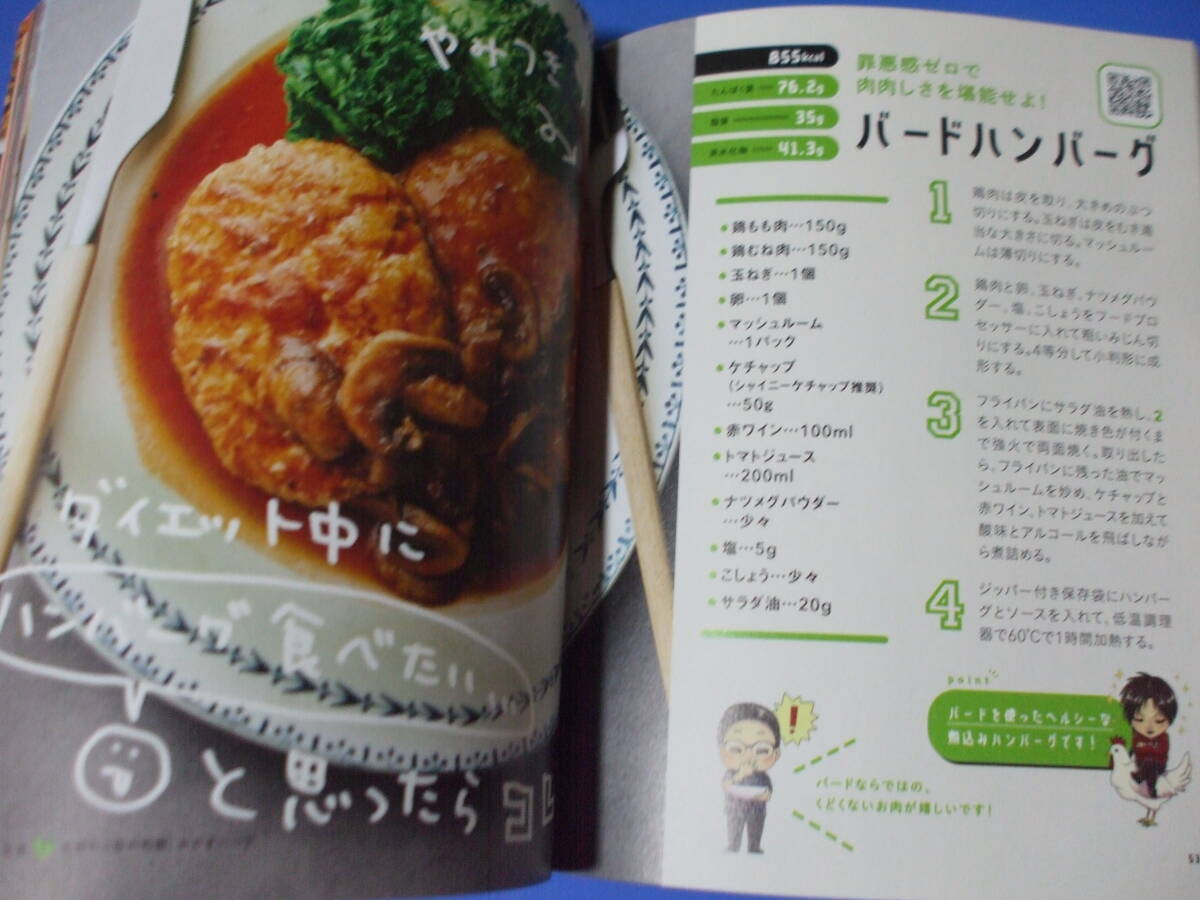 やみつき
ダイエット中に
ハンバーグ食べたい
と思ったら
コレ
855kcal
たんぱく質 76.2g
脂質 35g
炭水化物 41.3g
罪悪感ゼロで
肉肉しさを堪能せよ！
バードハンバーグ
・鶏もも肉…150g
・鶏むね肉…150g
・玉ねぎ…1個
・卵…1個
・マッシュルーム
…1パック
・ケチャップ
（シャイニーケチャップ推奨）
…50g
・赤ワイン…100ml
・トマトジュース
…200ml
・ナツメグパウダー
…少々
・塩…5g
・こしょう…少々
・サラダ油…20g
1
鶏肉は皮を取り、大きめのぶつ
切りにする。玉ねぎは皮をむき適
当な大きさに切る。マッシュルー
ムは薄切りにする。
2
鶏肉と卵、玉ねぎ、ナツメグパウ
ダー、塩、こしょうをフードプロ
セッサーに入れて粗いみじん切
りにする。4等分して小判形に成
形する。
3
フライパンにサラダ油を熱し、2
を入れて表面に焼き色が付くま
で強火で両面焼く。取り出した
ら、フライパンに残った油でマッ
シュルームを炒め、ケチャップと
赤ワイン、トマトジュースを加えて
酸味とアルコールを飛ばしなが
ら煮詰める。
4
ジッパー付き保存袋にハンバー
グとソースを入れて、低温調理
器で60℃で1時間加熱する。
point
バードを使ったヘルシーな
煮込みハンバーグです！
!
バードならではの、
くどくないお肉が嬉しいです！
53